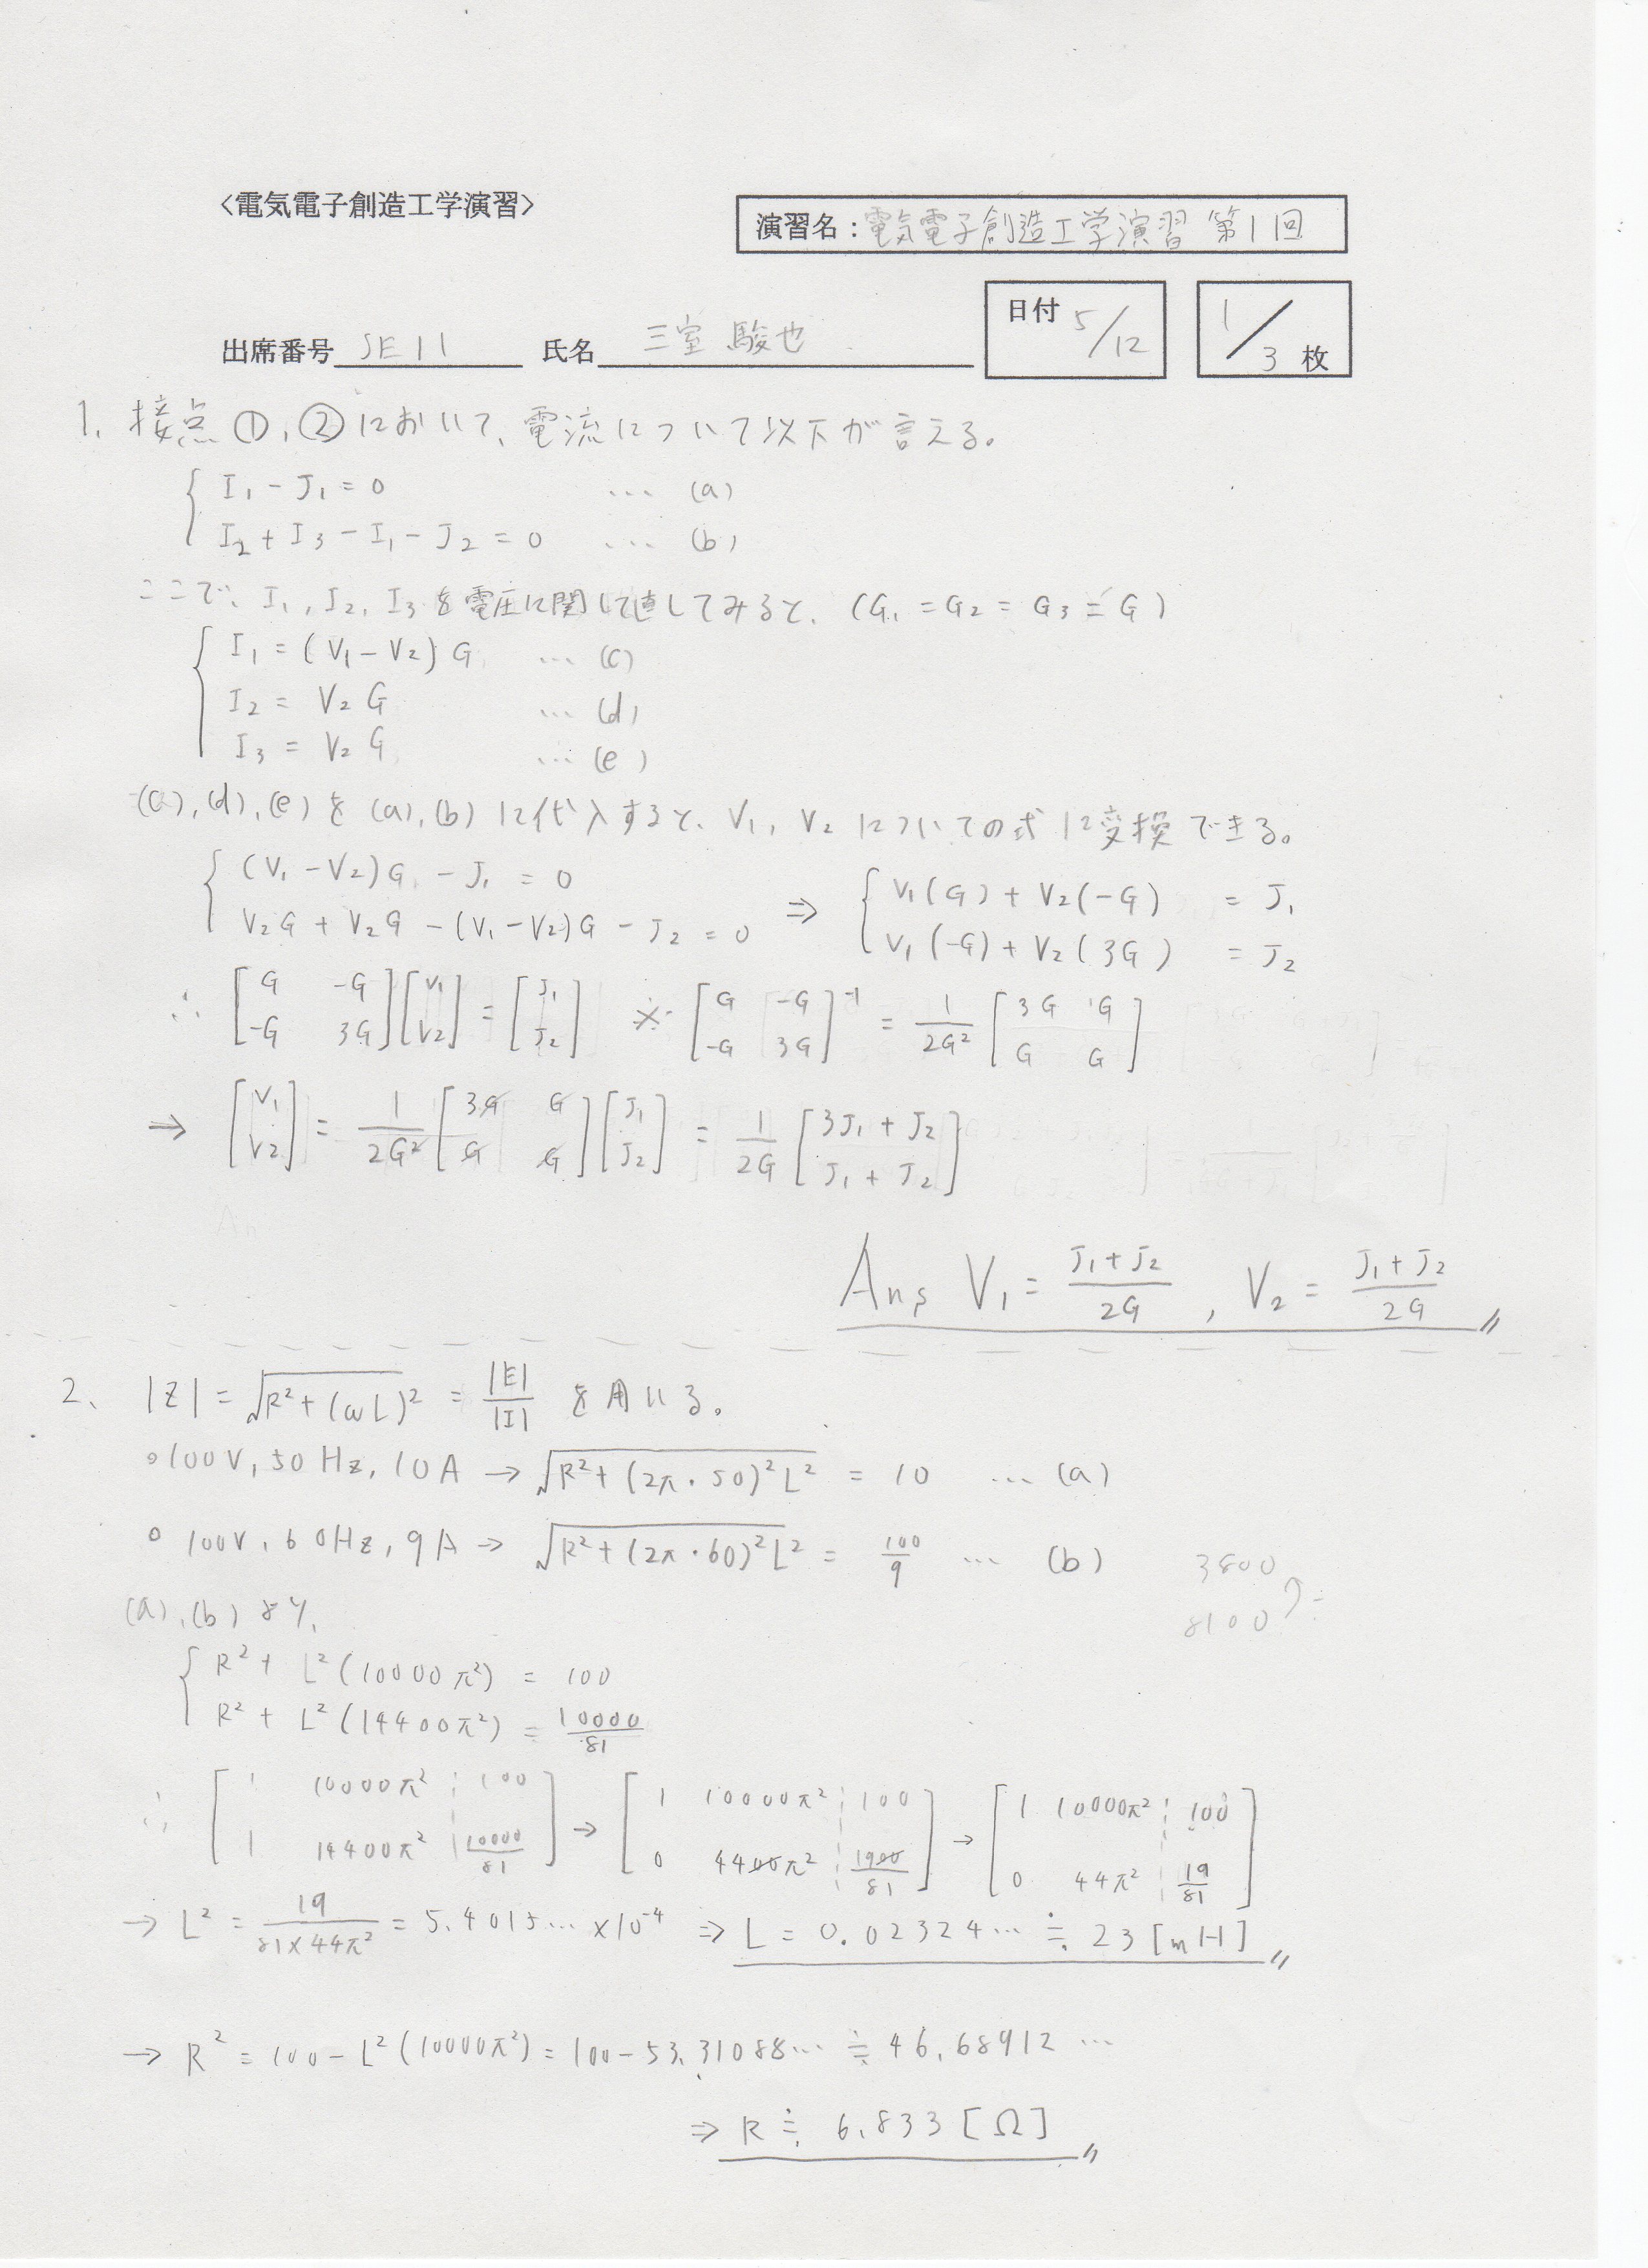 <電気電子創造工学演習>
演習名：電気電子創造工学演習 第1回
出席番号 SE11 氏名 三室 駿也 日付 5/12 1/3 枚
1. 接点①,②において、電流について以下が言える。
I₁ - J₁ = 0 … (a)
I₂ + I₃ - I₁ - J₂ = 0 … (b)
ここで、I₁, I₂, I₃を電圧に関して直してみると、(G₁ = G₂ = G₃ = G)
I₁ = (V₁ - V₂) G … (c)
I₂ = V₂ G … (d)
I₃ = V₂ G … (e)
(c), (d), (e) を (a), (b) に代入すると、V₁, V₂ についての式に変換できる。
{ (V₁ - V₂)G - J₁ = 0 , V₂G + V₂G - (V₁ - V₂)G - J₂ = 0 ⇒ { V₁(G) + V₂(-G) = J₁ , V₁(-G) + V₂(3G) = J₂
∴ [G -G ; -G 3G][V₁ ; V₂] = [J₁ ; J₂] ※ [G -G ; -G 3G]⁻¹ = 1/2G² [3G G ; G G]
→ [V₁ ; V₂] = 1/2G² [3G G ; G G][J₁ ; J₂] = 1/2G [3J₁ + J₂ ; J₁ + J₂]
Ans V₁ = (J₁ + J₂)/2G , V₂ = (J₁ + J₂)/2G 〃
2. |Z| = √(R² + (ωL)²) = |E|/|I| を用いる。
○100V, 50Hz, 10A → √(R² + (2π・50)²L²) = 10 … (a)
○100V, 60Hz, 9A → √(R² + (2π・60)²L²) = 100/9 … (b)
3800
8100
(a), (b) より、
R² + L²(10000π²) = 100
R² + L²(14400π²) = 10000/81
∴ [1 10000π² ¦ 100 ; 1 14400π² ¦ 10000/81] → [1 10000π² ¦ 100 ; 0 4400π² ¦ 1900/81] → [1 10000π² ¦ 100 ; 0 44π² ¦ 19/81]
→ L² = 19/(81×44π²) = 5.4015… ×10⁻⁴ ⇒ L = 0.02324… ≒ 23 [mH] 〃
→ R² = 100 - L²(10000π²) = 100 - 53.31088… ≒ 46.68912 …
⇒ R ≒ 6.833 [Ω] 〃